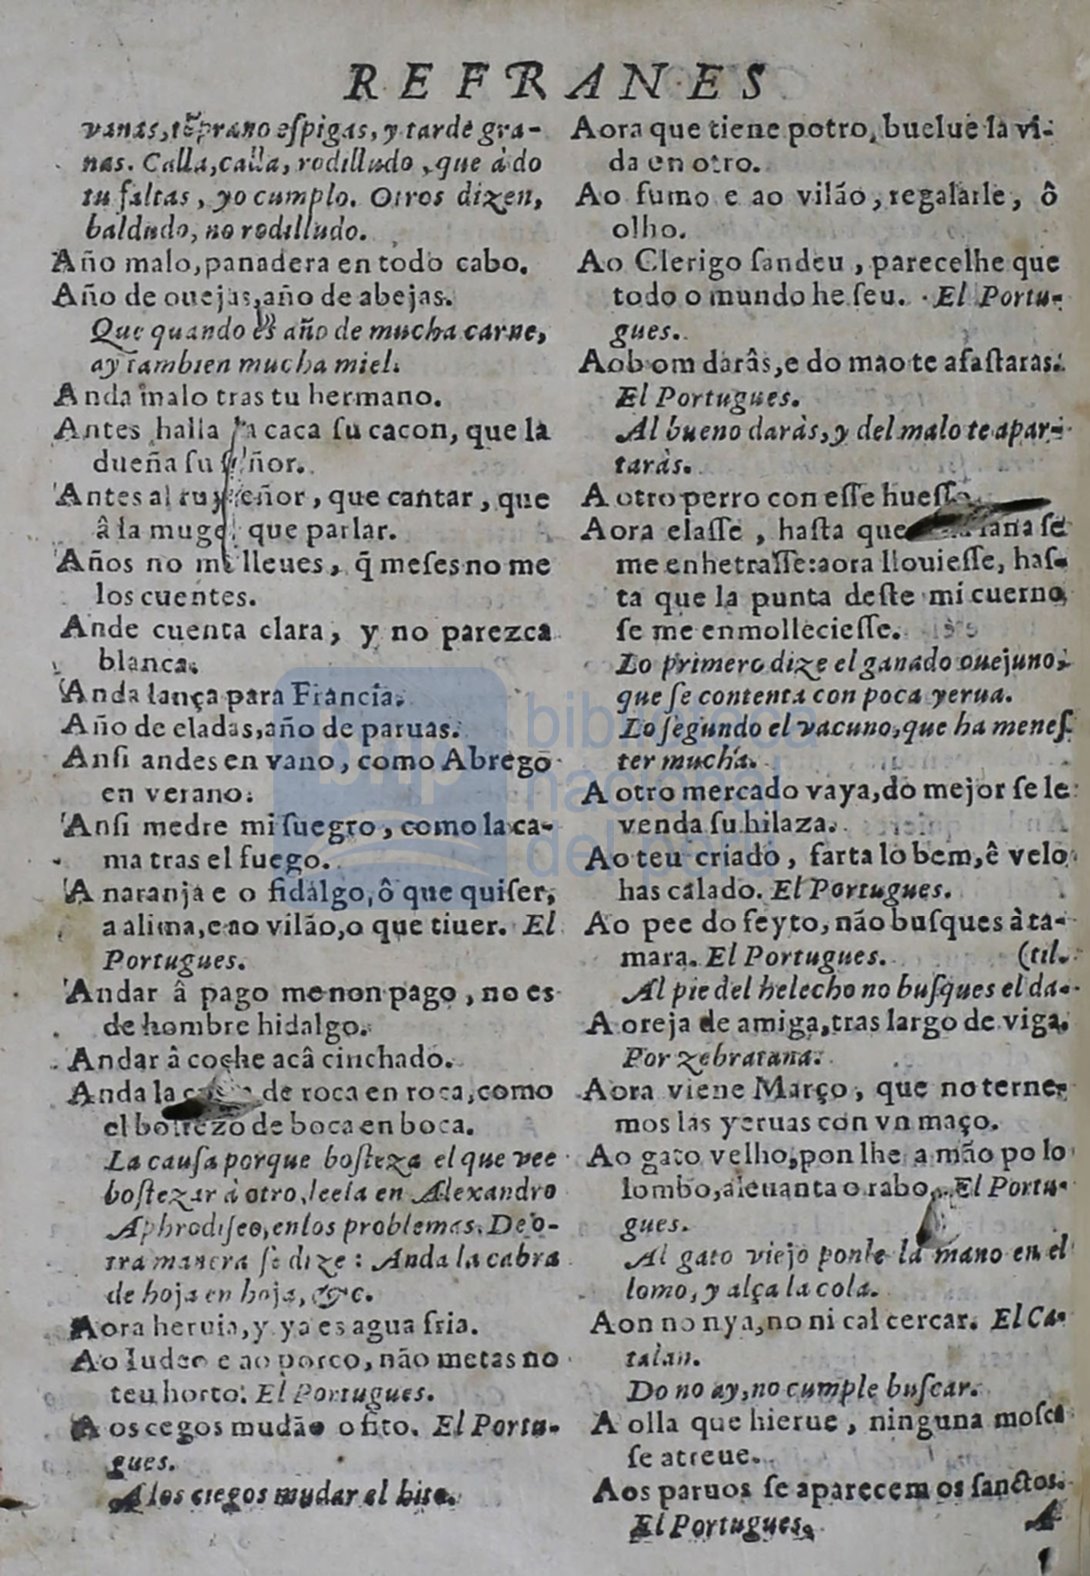 REFRANES
vanas, tẽprano espigas, y tarde gra-
nas. Calla, calla, rodilludo, que à do
tu faltas, yo cumplo. Otros dizen,
baldudo, no rodilludo.
Año malo, panadera en todo cabo.
Año de ouejas, año de abejas.
Que quando es año de mucha carne,
ay tambien mucha miel.
Anda malo tras tu hermano.
Antes halla la caca su cacon, que la
dueña su señor.
Antes al ruyseñor, que cantar, que
â la muger que parlar.
Años no me lleues, q̃ meses no me
los cuentes.
Ande cuenta clara, y no parezca
blanca.
Anda lança para Francia.
Año de eladas, año de paruas.
Ansi andes en vano, como Abrego
en verano.
Ansi medre mi suegro, como la ca-
ma tras el fuego.
A naranja e o fidalgo, ô que quiser,
a alima, e ao vilão, o que tiuer. El
Portugues.
Andar â pago me non pago, no es
de hombre hidalgo.
Andar â coche acâ cinchado.
Anda la de roca en roca, como
el bostezo de boca en boca.
La causa porque bosteza el que vee
bostezar à otro, leela en Alexandro
Aphrodiseo, en los problemas. De o-
tra manera se dize: Anda la cabra
de hoja en hoja, &c.
Aora heruia, y ya es agua fria.
Ao Iudeo e ao porco, não metas no
teu horto. El Portugues.
Aos cegos mudão o fito. El Portu-
gues.
A los ciegos mudar el hito.
Aora que tiene potro, buelue la vi-
da en otro.
Ao fumo e ao vilão, regalarle, ô
olho.
Ao Clerigo sandeu, parecelhe que
todo o mundo he seu. El Portu-
gues.
Ao bom darâs, e do mao te afastaras.
El Portugues.
Al bueno daràs, y del malo te apar-
taràs.
A otro perro con esse huesso.
Aora elasse, hasta que lana se
me enhetrasse: aora llouiesse, has-
ta que la punta deste mi cuerno
se me enmolleciesse.
Lo primero dize el ganado ouejuno,
que se contenta con poca yerua.
Lo segundo el vacuno, que ha menes-
ter mucha.
A otro mercado vaya, do mejor se le
venda su hilaza.
Ao teu criado, farta lo bem, ê velo
has calado. El Portugues.
Ao pee do feyto, não busques à ta-
mara. El Portugues. (til.
Al pie del helecho no busques el da-
A oreja de amiga, tras largo de viga.
Por zebratana.
Aora viene Março, que no terne-
mos las yeruas con vn maço.
Ao gato velho, pon lhe a mão po lo
lombo, aleuanta o rabo. El Portu-
gues.
Al gato viejo ponle la mano en el
lomo, y alça la cola.
Aon no nya, no ni cal cercar. El Ca-
talan.
Do no ay, no cumple buscar.
A olla que hierue, ninguna mosca
se atreue.
Aos paruos se aparecem os sanctos.
El Portugues.
A
bnp
biblioteca
nacional
del perú